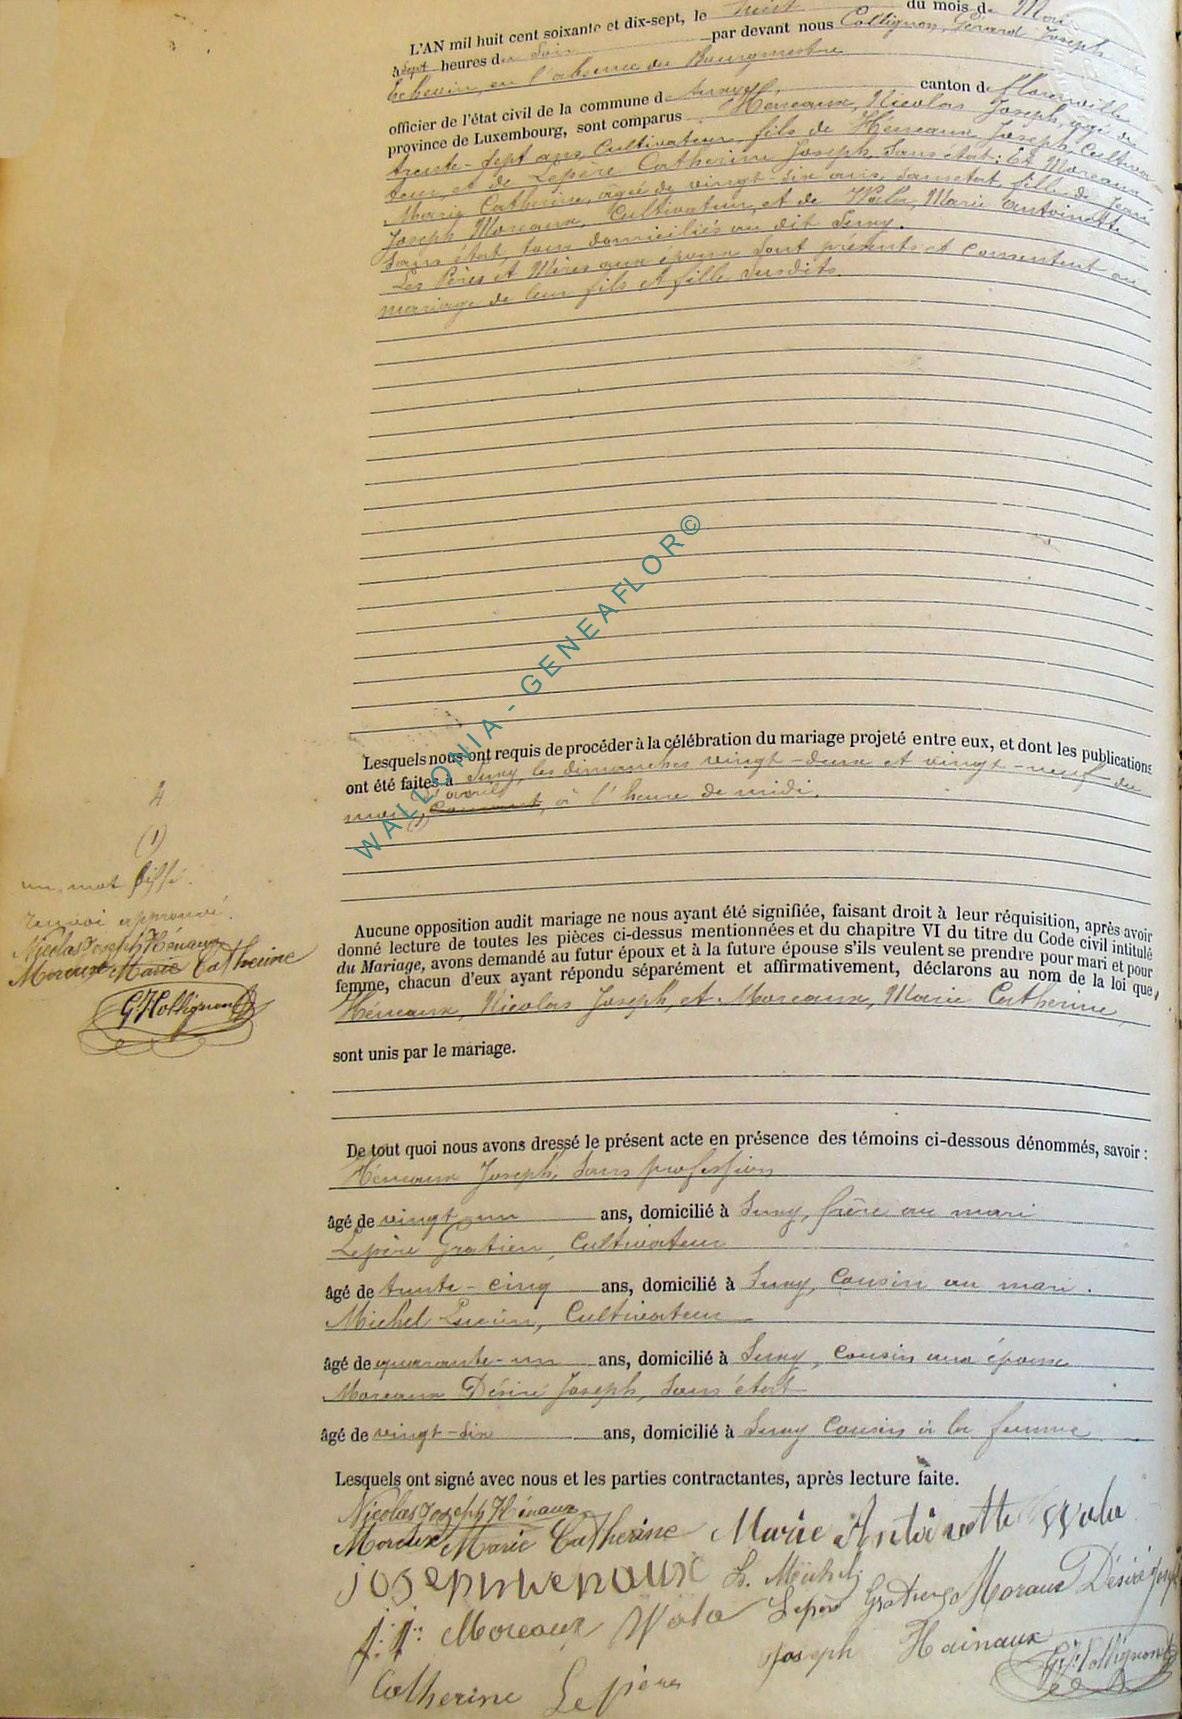 L'AN mil huit cent soixante et dix-sept, le huit du mois de Mai
à sept heures du Soir par devant nous Collignon, Gérard Joseph
Echevin, en l'absence du Bourgmestre
officier de l'état civil de la commune de Suxy, canton de Florenville
province de Luxembourg, sont comparus Héneaux, Nicolas Joseph, agé de
trente-sept ans, Cultivateur, fils de Héneaux, Joseph, Cultiva-
teur, et de Lepère Catherine Joseph, Sans état; Et Moreaux
Marie Catherine, agée de vingt-six ans, Sans état, fille de Jean
Joseph Moreaux, Cultivateur, et de Wala, Marie Antoinette,
Sans état, tous domiciliés au dit Suxy.
Les Pères et Mères aux époux sont présents et consentent au
mariage de leur fils et fille susdits.
Lesquels nous ont requis de procéder à la célébration du mariage projeté entre eux, et dont les publications
ont été faites à Suxy, les dimanches vingt-deux et vingt-neuf du
mois (1) d'avril Courant, à l'heure de midi.
(1)
un mot biffé.
renvoi approuvé.
Nicolas Joseph Hénaux
Moreaux Marie Catherine
G. J. Collignon
Aucune opposition audit mariage ne nous ayant été signifiée, faisant droit à leur réquisition, après avoir
donné lecture de toutes les pièces ci-dessus mentionnées et du chapitre VI du titre du Code civil intitulé
du Mariage, avons demandé au futur époux et à la future épouse s'ils veulent se prendre pour mari et pour
femme, chacun d'eux ayant répondu séparément et affirmativement, déclarons au nom de la loi que,
Héneaux, Nicolas Joseph, et Moreaux, Marie Catherine,
sont unis par le mariage.
De tout quoi nous avons dressé le présent acte en présence des témoins ci-dessous dénommés, savoir :
Héneaux Joseph, Sans profession
âgé de vingt-un ans, domicilié à Suxy, frère au mari
Lepère Gratien, Cultivateur
âgé de trente-cinq ans, domicilié à Suxy, Cousin au mari.
Michel Lucien, Cultivateur
âgé de quarante-un ans, domicilié à Suxy, Cousin aux époux
Moreaux Désiré Joseph, Sans état
âgé de vingt-six ans, domicilié à Suxy Cousin à la femme
Lesquels ont signé avec nous et les parties contractantes, après lecture faite.
Nicolas Joseph Hénaux
Moreaux Marie Catherine Marie Antoinette Wala
joseph henaux L. Michel
j: j: Moreaux Wala Lepère Gratien Moraux Désiré Joseph
Joseph Hainaux G. J. Collignon
Catherine Lepère
WALLONIA - GENEAFLOR©